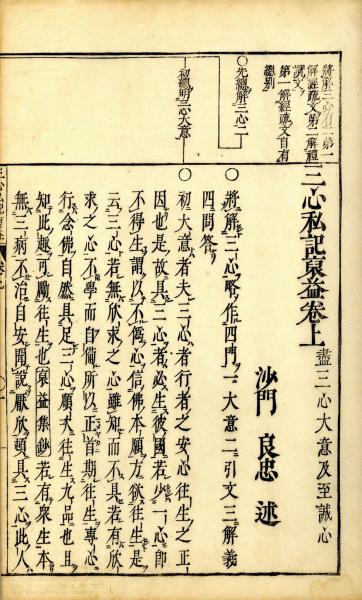 將解三心有二第一
解經疏文第二解禮
讚文
第一解經疏文自有
總別
〇先總解三心二
初總明三心大意
三心私記裒益卷上 盡三心大意及至誠心
沙門 良忠 述
〇將解三心略作四門一大意二引文三解義
四問答
〇初大意者夫三心者行者之安心往生之正
因也是故具三心者必生彼國若少一心即
不得生謂以不僞心信佛本願方欲往生是
云三心若無欣求之心雖知而不具若有欣
求之心不學而自備所以正首期往生專心
行念佛自然具足三心順次往生九品也且
知此趣可勵往生也裒益集鈔若有衆生本
無三病不治自安聞說厭欣頓具三心此人